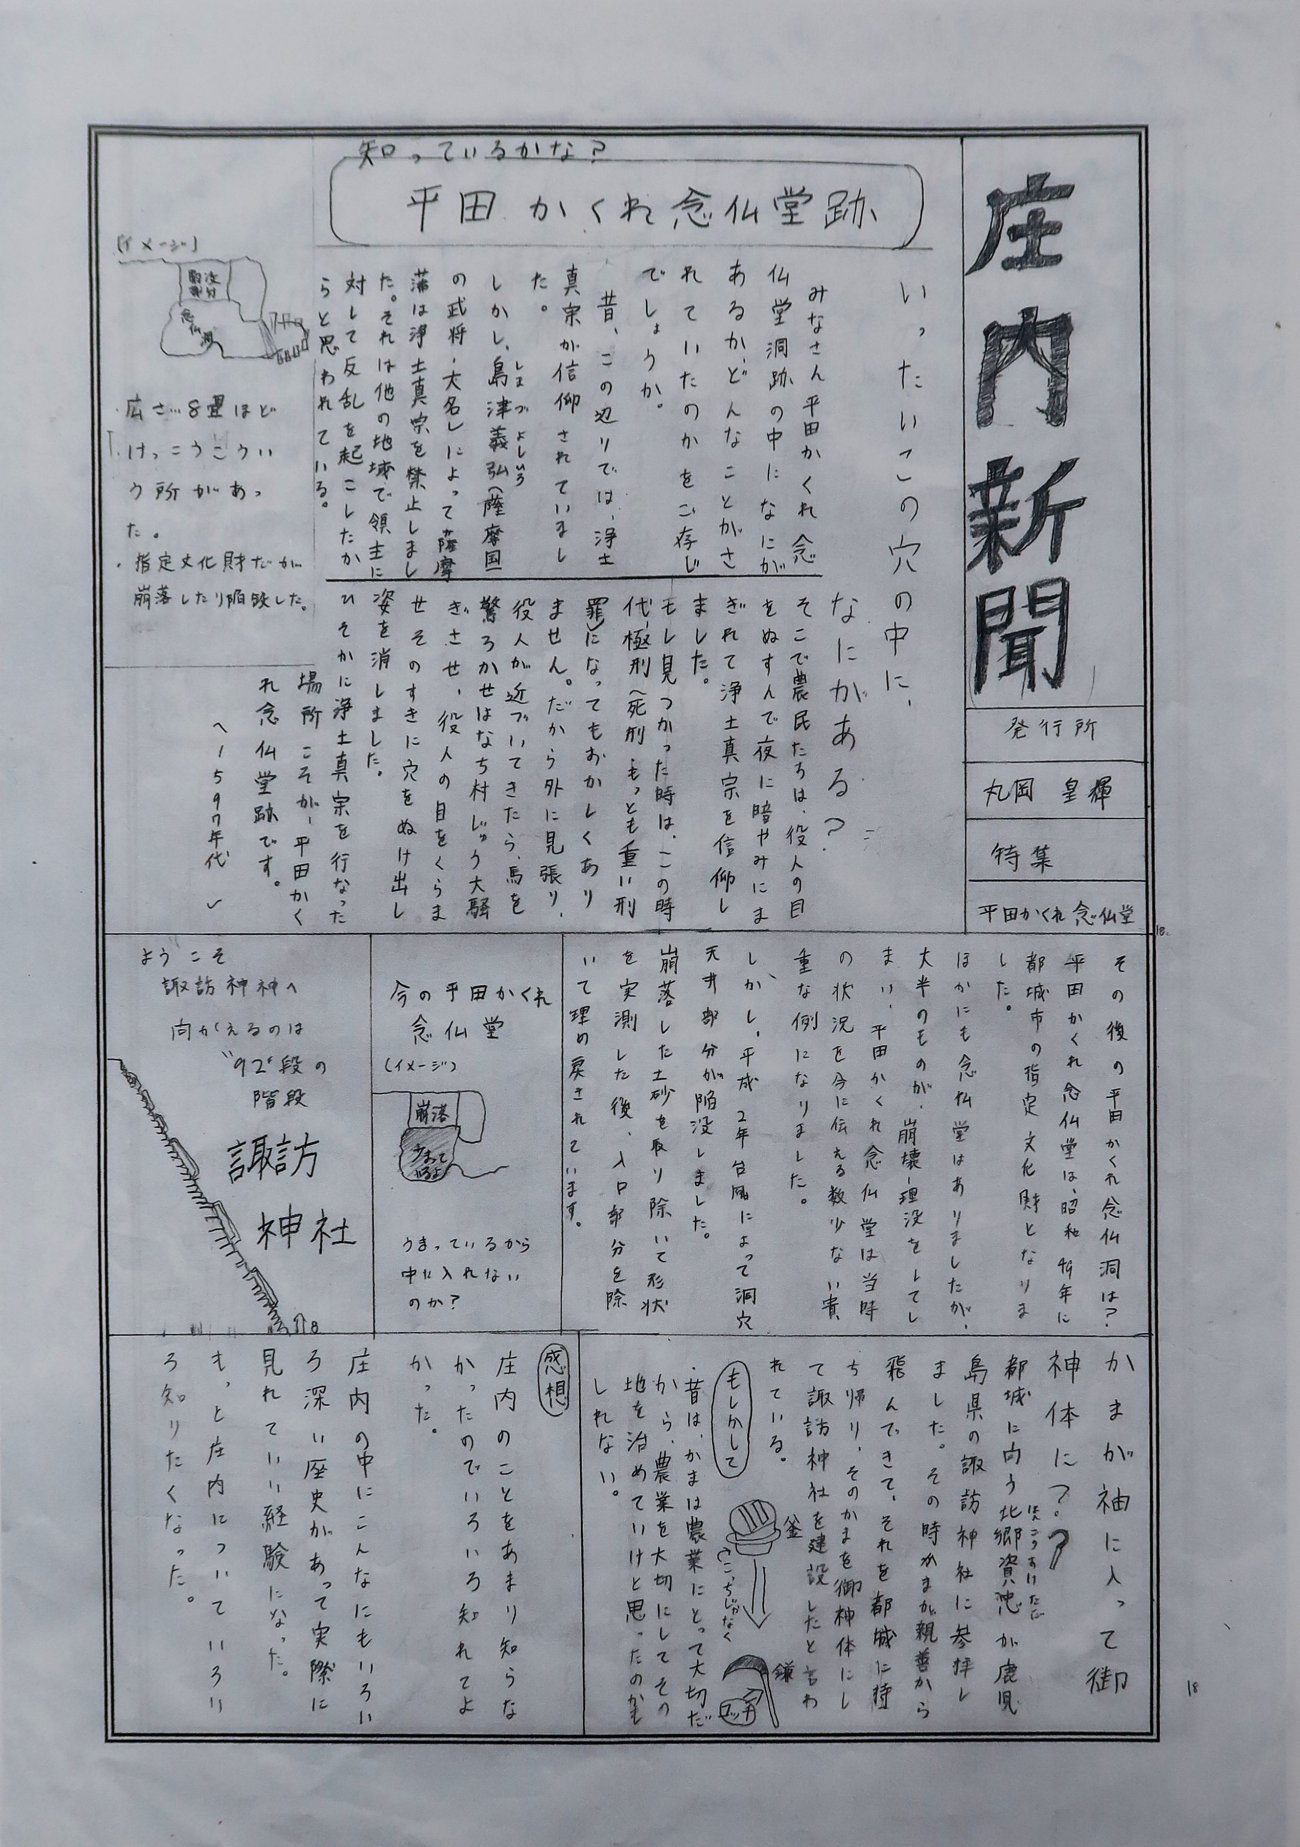 庄内新聞
発行所
丸岡 皇輝
特集
平田かくれ念仏堂
知っているかな？
平田かくれ念仏堂跡
いったいこの穴の中に、
なにがある？
みなさん平田かくれ念
仏堂洞跡の中になにが
あるか、どんなことがさ
れていたのかをご存じ
でしょうか。
昔、この辺りでは、浄土
真宗が信仰されていまし
た。
しかし、島津義弘(薩摩国
しまづよしひろ
の武将・大名)によって薩摩
藩は浄土真宗を禁止しまし
た。それは他の地域で領主に
対して反乱を起こしたか
らと思われている。
そこで農民たちは、役人の目
をぬすんで夜に暗やみにま
ぎれて浄土真宗を信仰し
ました。
もし見つかった時は、この時
代、極刑(死刑・もっとも重い刑
罪)になってもおかしくあり
ません。だから外に見張り、
役人が近づいてきたら、馬を
驚ろかせはなち村じゅう大騒
ぎさせ、役人の目をくらま
せそのすきに穴をぬけ出し
姿を消しました。
ひそかに浄土真宗を行なった
場所こそが、平田かく
れ念仏堂跡です。
(イメージ)
念仏洞
・広さ…8畳ほど
けっこうこうい
う所があっ
た。
・指定文化財だが
崩落したり陥没した。
その後の平田かくれ念仏洞は？
平田かくれ念仏堂は、昭和49年に
都城市の指定文化財となりま
した。
ほかにも念仏堂はありましたが、
大半のものが、崩壊・埋没をしてし
まい、平田かくれ念仏堂は当時
の状況を今に伝える数少ない貴
重な例になりました。
しかし、平成2年台風によって洞穴
天井部分が陥没しました。
崩落した土砂を取り除いて形状
を実測した後、入口部分を除
いて埋め戻されています。
今の平田かくれ
念仏堂
(イメージ)
崩落
うまって
いるよ
うまっているから
中に入れない
のか？
ようこそ
諏訪神社へ
向かえるのは
"92"段の
階段
諏訪
神社
かまが袖に入って御
神体に？？
都城に向う北郷資忠が鹿児
ほんごうすけただ
島県の諏訪神社に参拝し
ました。その時かまが親善から
飛んできて、それを都城に持
ち帰り、そのかまを御神体にし
て諏訪神社を建設したと言わ
れている。
もしかして
・昔は、かまは農業にとって大切だ
から、農業を大切にしてその
地を治めていけと思ったのかも
しれない。
釜
こっちじゃなく
鎌
コッチ
感想
庄内のことをあまり知らな
かったのでいろいろ知れてよ
かった。
庄内の中にこんなにもいろい
ろ深い歴史があって実際に
見れていい経験になった。
もっと庄内についていろい
ろ知りたくなった。
18